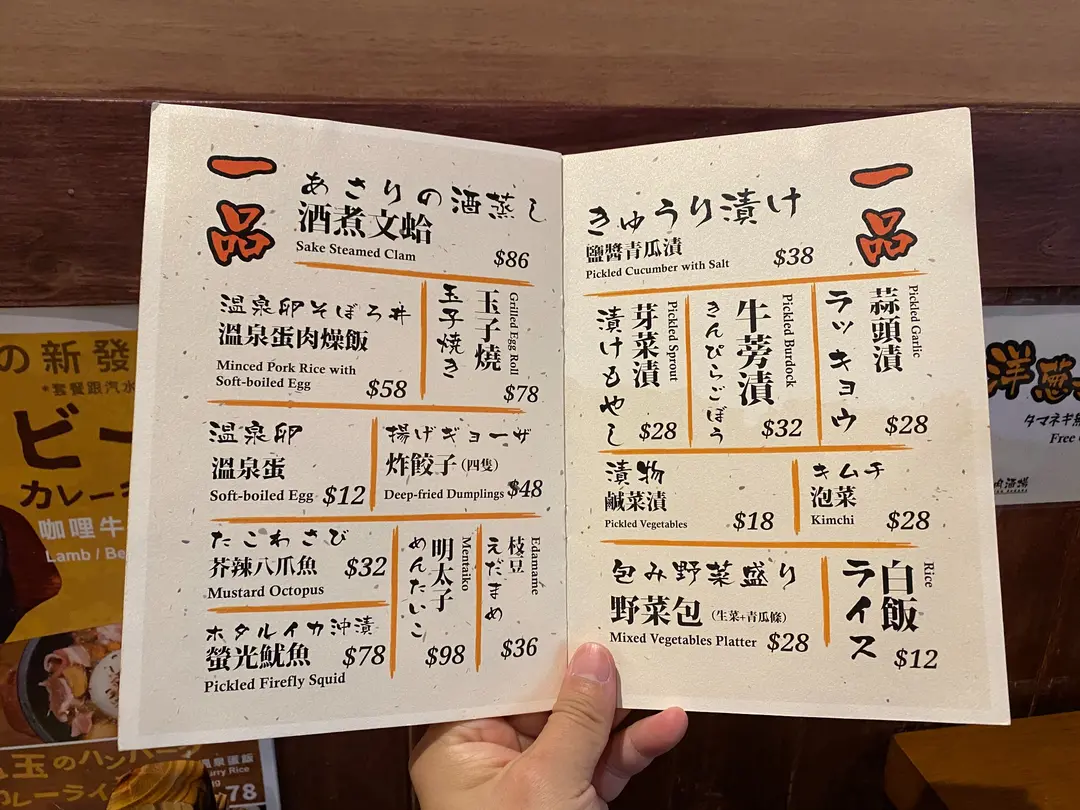 一品
あさりの酒蒸し
酒煮文蛤
Sake Steamed Clam
$86
温泉卵そぼろ丼
溫泉蛋肉燥飯
Minced Pork Rice with
Soft-boiled Egg
$58
Grilled Egg Roll
玉子燒
玉子焼き
$78
温泉卵
溫泉蛋
Soft-boiled Egg $12
揚げギョーザ
炸餃子(四隻)
Deep-fried Dumplings $48
たこわさび
芥辣八爪魚
Mustard Octopus
$32
ホタルイカ沖漬
螢光魷魚
Pickled Firefly Squid
$78
Mentaiko
明太子
めんたいこ
$98
Edamame
枝豆
えだまめ
$36
一品
きゅうり漬け
鹽醬青瓜漬
Pickled Cucumber with Salt
$38
Pickled Sprout
芽菜漬
漬けもやし
$28
Pickled Burdock
牛蒡漬
きんぴらごぼう
$32
Pickled Garlic
蒜頭漬
ラッキョウ
$28
漬物
鹹菜漬
Pickled Vegetables
$18
キムチ
泡菜
Kimchi
$28
包み野菜盛り
野菜包(生菜+青瓜條)
Mixed Vegetables Platter $28
Rice
白飯
ライス
$12
の新發
*套餐跟汽水
ビー
カレー
咖哩牛
Lamb / Be
玉のハンバーグ
カレーライ
溫泉蛋飯
urry Rice
78
洋葱
タマネギ
Free
肉酒場